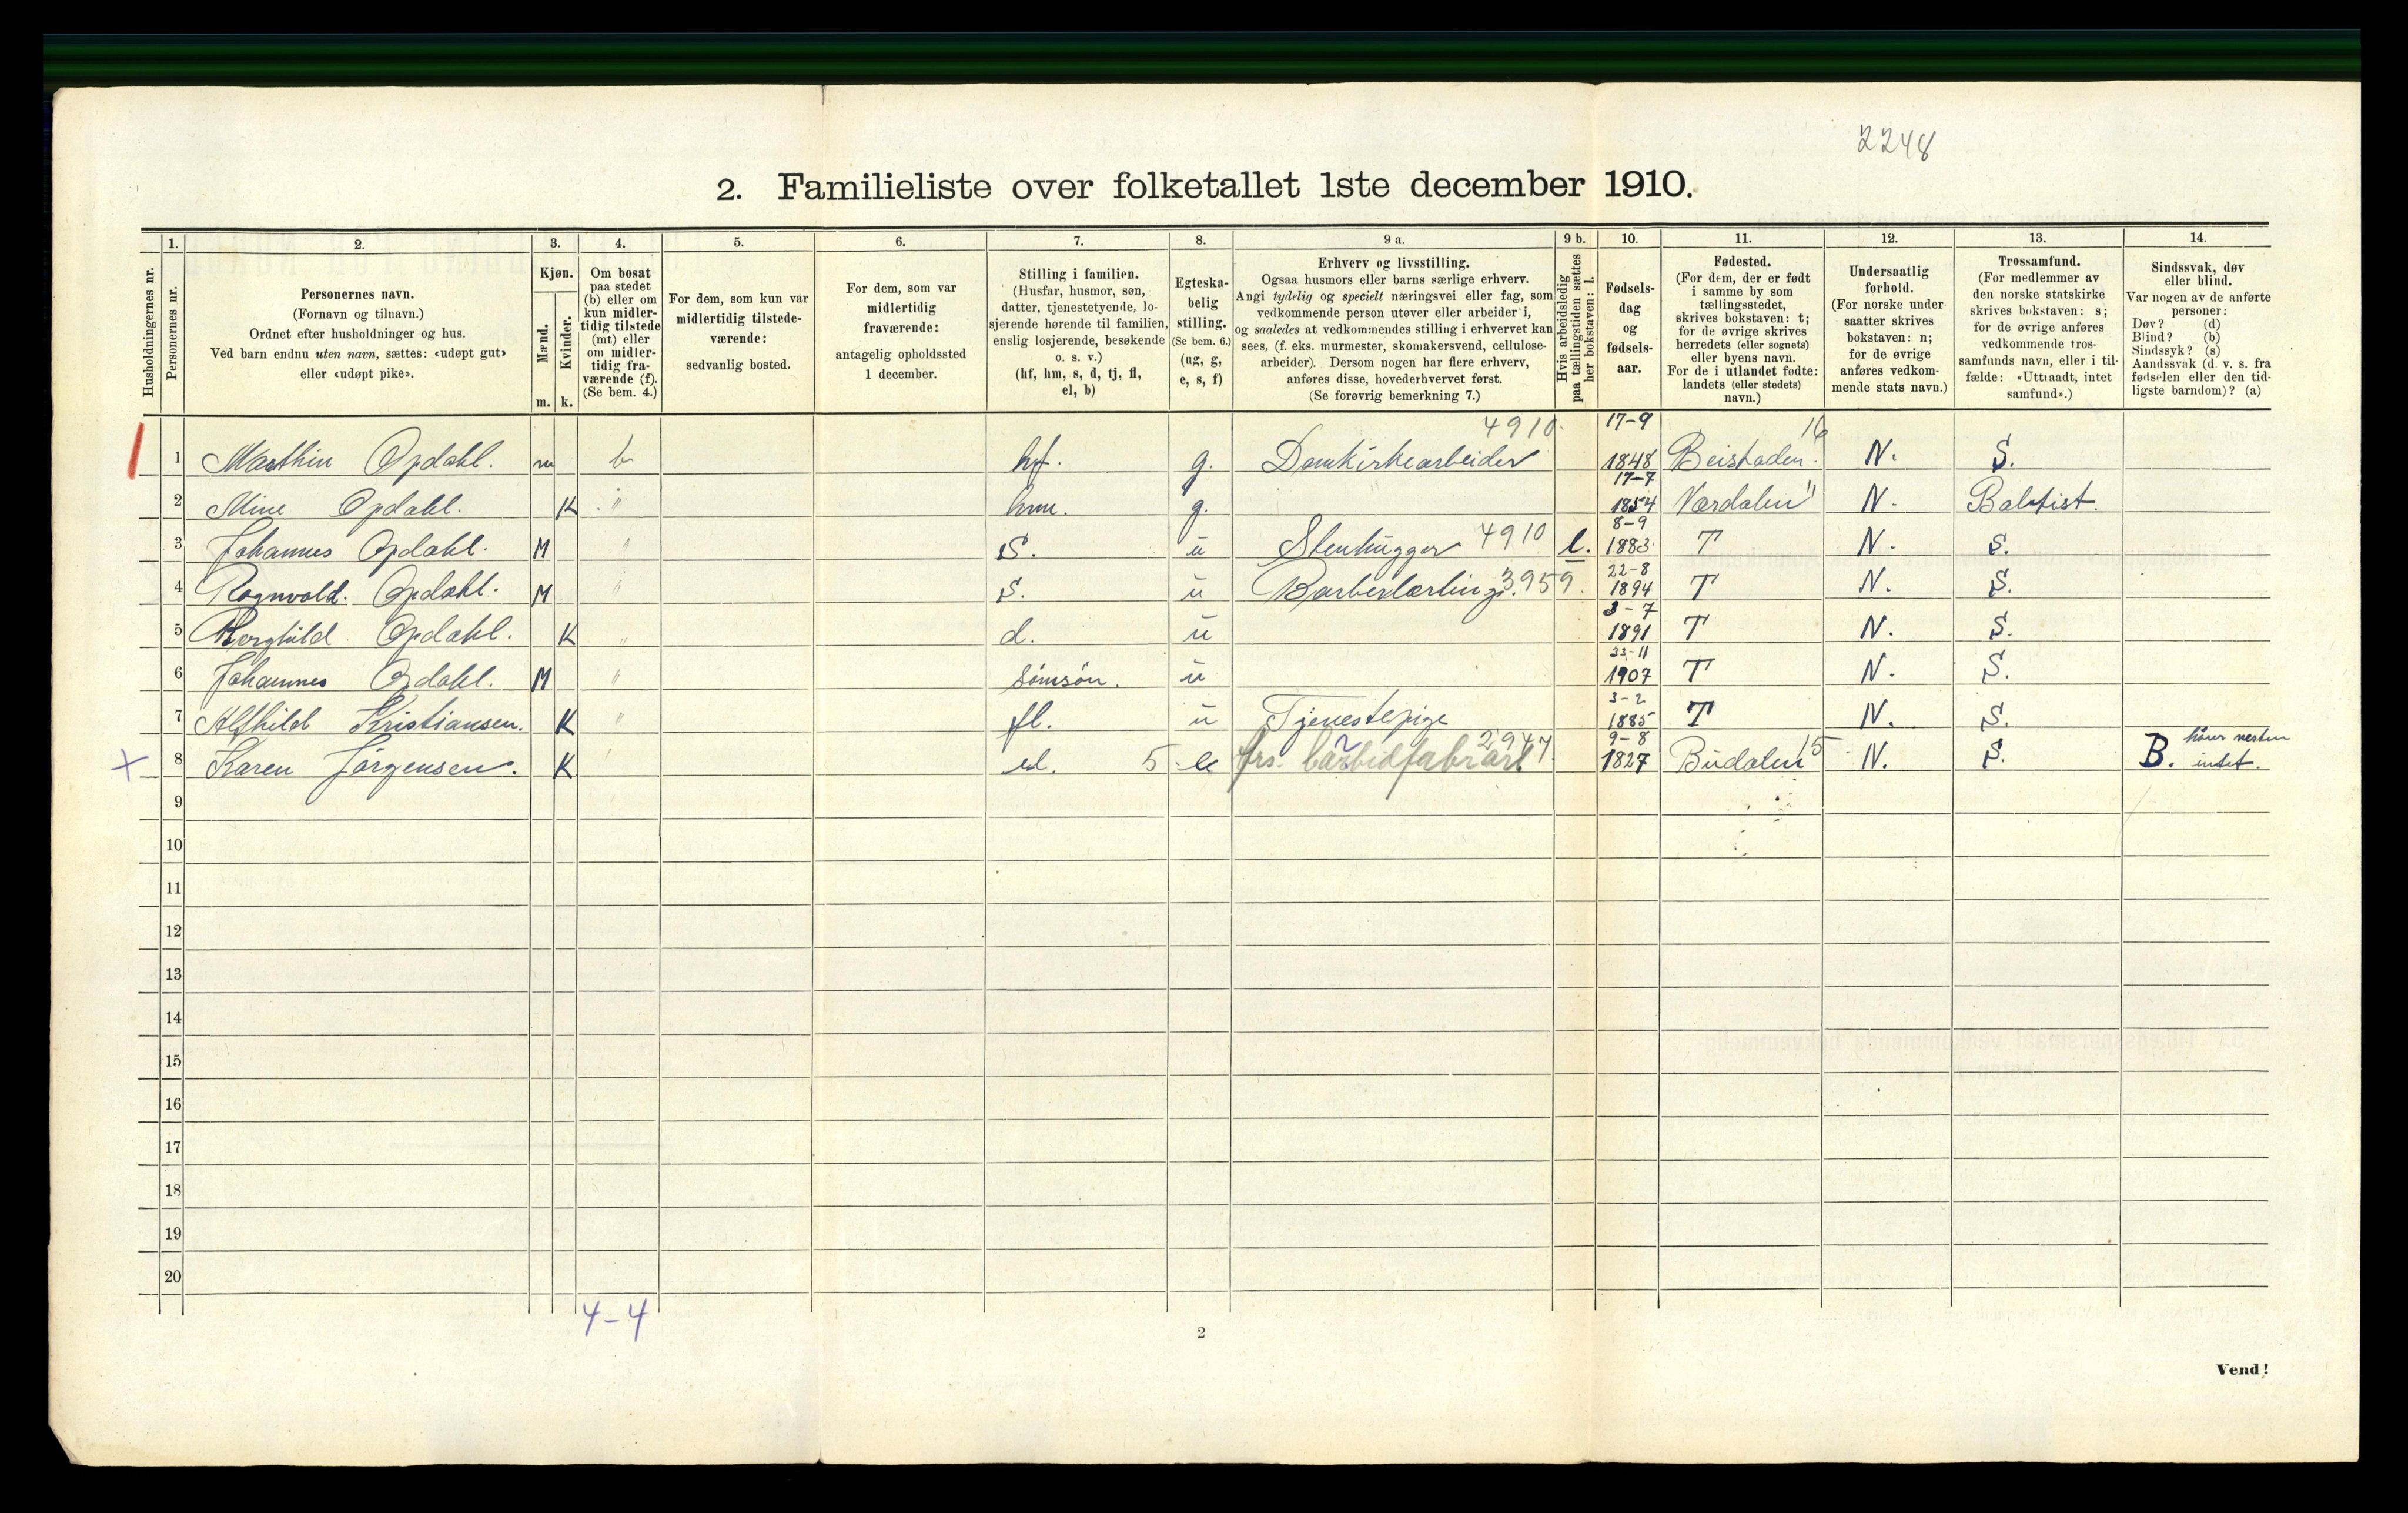 2248
2. Familieliste over folketallet 1ste december 1910.
Husholdningernes nr.
1.
Personernes nr.
2.
Personernes navn.
(Fornavn og tilnavn.)
Ordnet efter husholdninger og hus.
Ved barn endnu uten navn, sættes: «udøpt gut»
eller «udøpt pike».
3.
Kjøn.
Mænd.
Kvinder.
m. k.
4.
Om bosat
paa stedet
(b) eller om
kun midler-
tidig tilstede
(mt) eller
om midler-
tidig fra-
værende (f).
(Se bem. 4.)
5.
For dem, som kun var
midlertidig tilstede-
værende:
sedvanlig bosted.
6.
For dem, som var
midlertidig
fraværende:
antagelig opholdssted
1 december.
7.
Stilling i familien.
(Husfar, husmor, søn,
datter, tjenestetyende, lo-
sjerende hørende til familien,
enslig losjerende, besøkende
o. s. v.)
(hf, hm, s, d, tj, fl,
el, b)
8.
Egteska-
belig
stilling.
(Se bem. 6.)
(ug, g,
e, s, f)
9 a.
Erhverv og livsstilling.
Ogsaa husmors eller barns særlige erhverv.
Angi tydelig og specielt næringsvei eller fag, som
vedkommende person utøver eller arbeider i,
og saaledes at vedkommendes stilling i erhvervet kan
sees, (f. eks. murmester, skomakersvend, cellulose-
arbeider). Dersom nogen har flere erhverv,
anføres disse, hovederhvervet først.
(Se forøvrig bemerkning 7.)
9 b.
Hvis arbeidsledig
paa tællingstiden sættes
her bokstaven: l.
10.
Fødsels-
dag
og
fødsels-
aar.
11.
Fødested.
(For dem, der er født
i samme by som
tællingsstedet,
skrives bokstaven: t;
for de øvrige skrives
herredets (eller sognets)
eller byens navn.
For de i utlandet fødte:
landets (eller stedets)
navn.)
12.
Undersaatlig
forhold.
(For norske under-
saatter skrives
bokstaven: n;
for de øvrige
anføres vedkom-
mende stats navn.)
13.
Trossamfund.
(For medlemmer av
den norske statskirke
skrives bokstaven: s;
for de øvrige anføres
vedkommende tros-
samfunds navn, eller i til-
fælde: «Uttraadt, intet
samfund».)
14.
Sindssvak, døv
eller blind.
Var nogen av de anførte
personer:
Døv? (d)
Blind? (b)
Sindssyk? (s)
Aandssvak (d. v. s. fra
fødselen eller den tid-
ligste barndom)? (a)
1 Marthin Opdahl. m b hf. g. Domkirkearbeider 4910 17-9 1848 Beistaden. 16 N. S.
2 Mine Opdahl. K " hm. g. 17-7 1854 Værdalen " N. Babtist.
3 Johannes Opdahl. M " S. u Stenhugger 4910 l. 8-9 1883 T N. S.
4 Ragnvald. Opdahl. M " S. u Barberlærling. 3959. 22-8 1894 T N. S.
5 Borghild Opdahl. K " d. u 3-7 1891 T N. S.
6 Johannes Opdahl. M " sønsøn. u 11 1907 T N. S.
7 Alfhild Kristiansen. K " fl. u Tjenestepige 3-2 1885 T N. S.
8 Karen Jørgensen. K " el. 5 e frs. carbidfabrarb 2947. 9-8 1827 Budalen 15 N. S. B. hører næsten intet.
9
10
11
12
13
14
15
16
17
18
19
20
4-4
2
Vend!